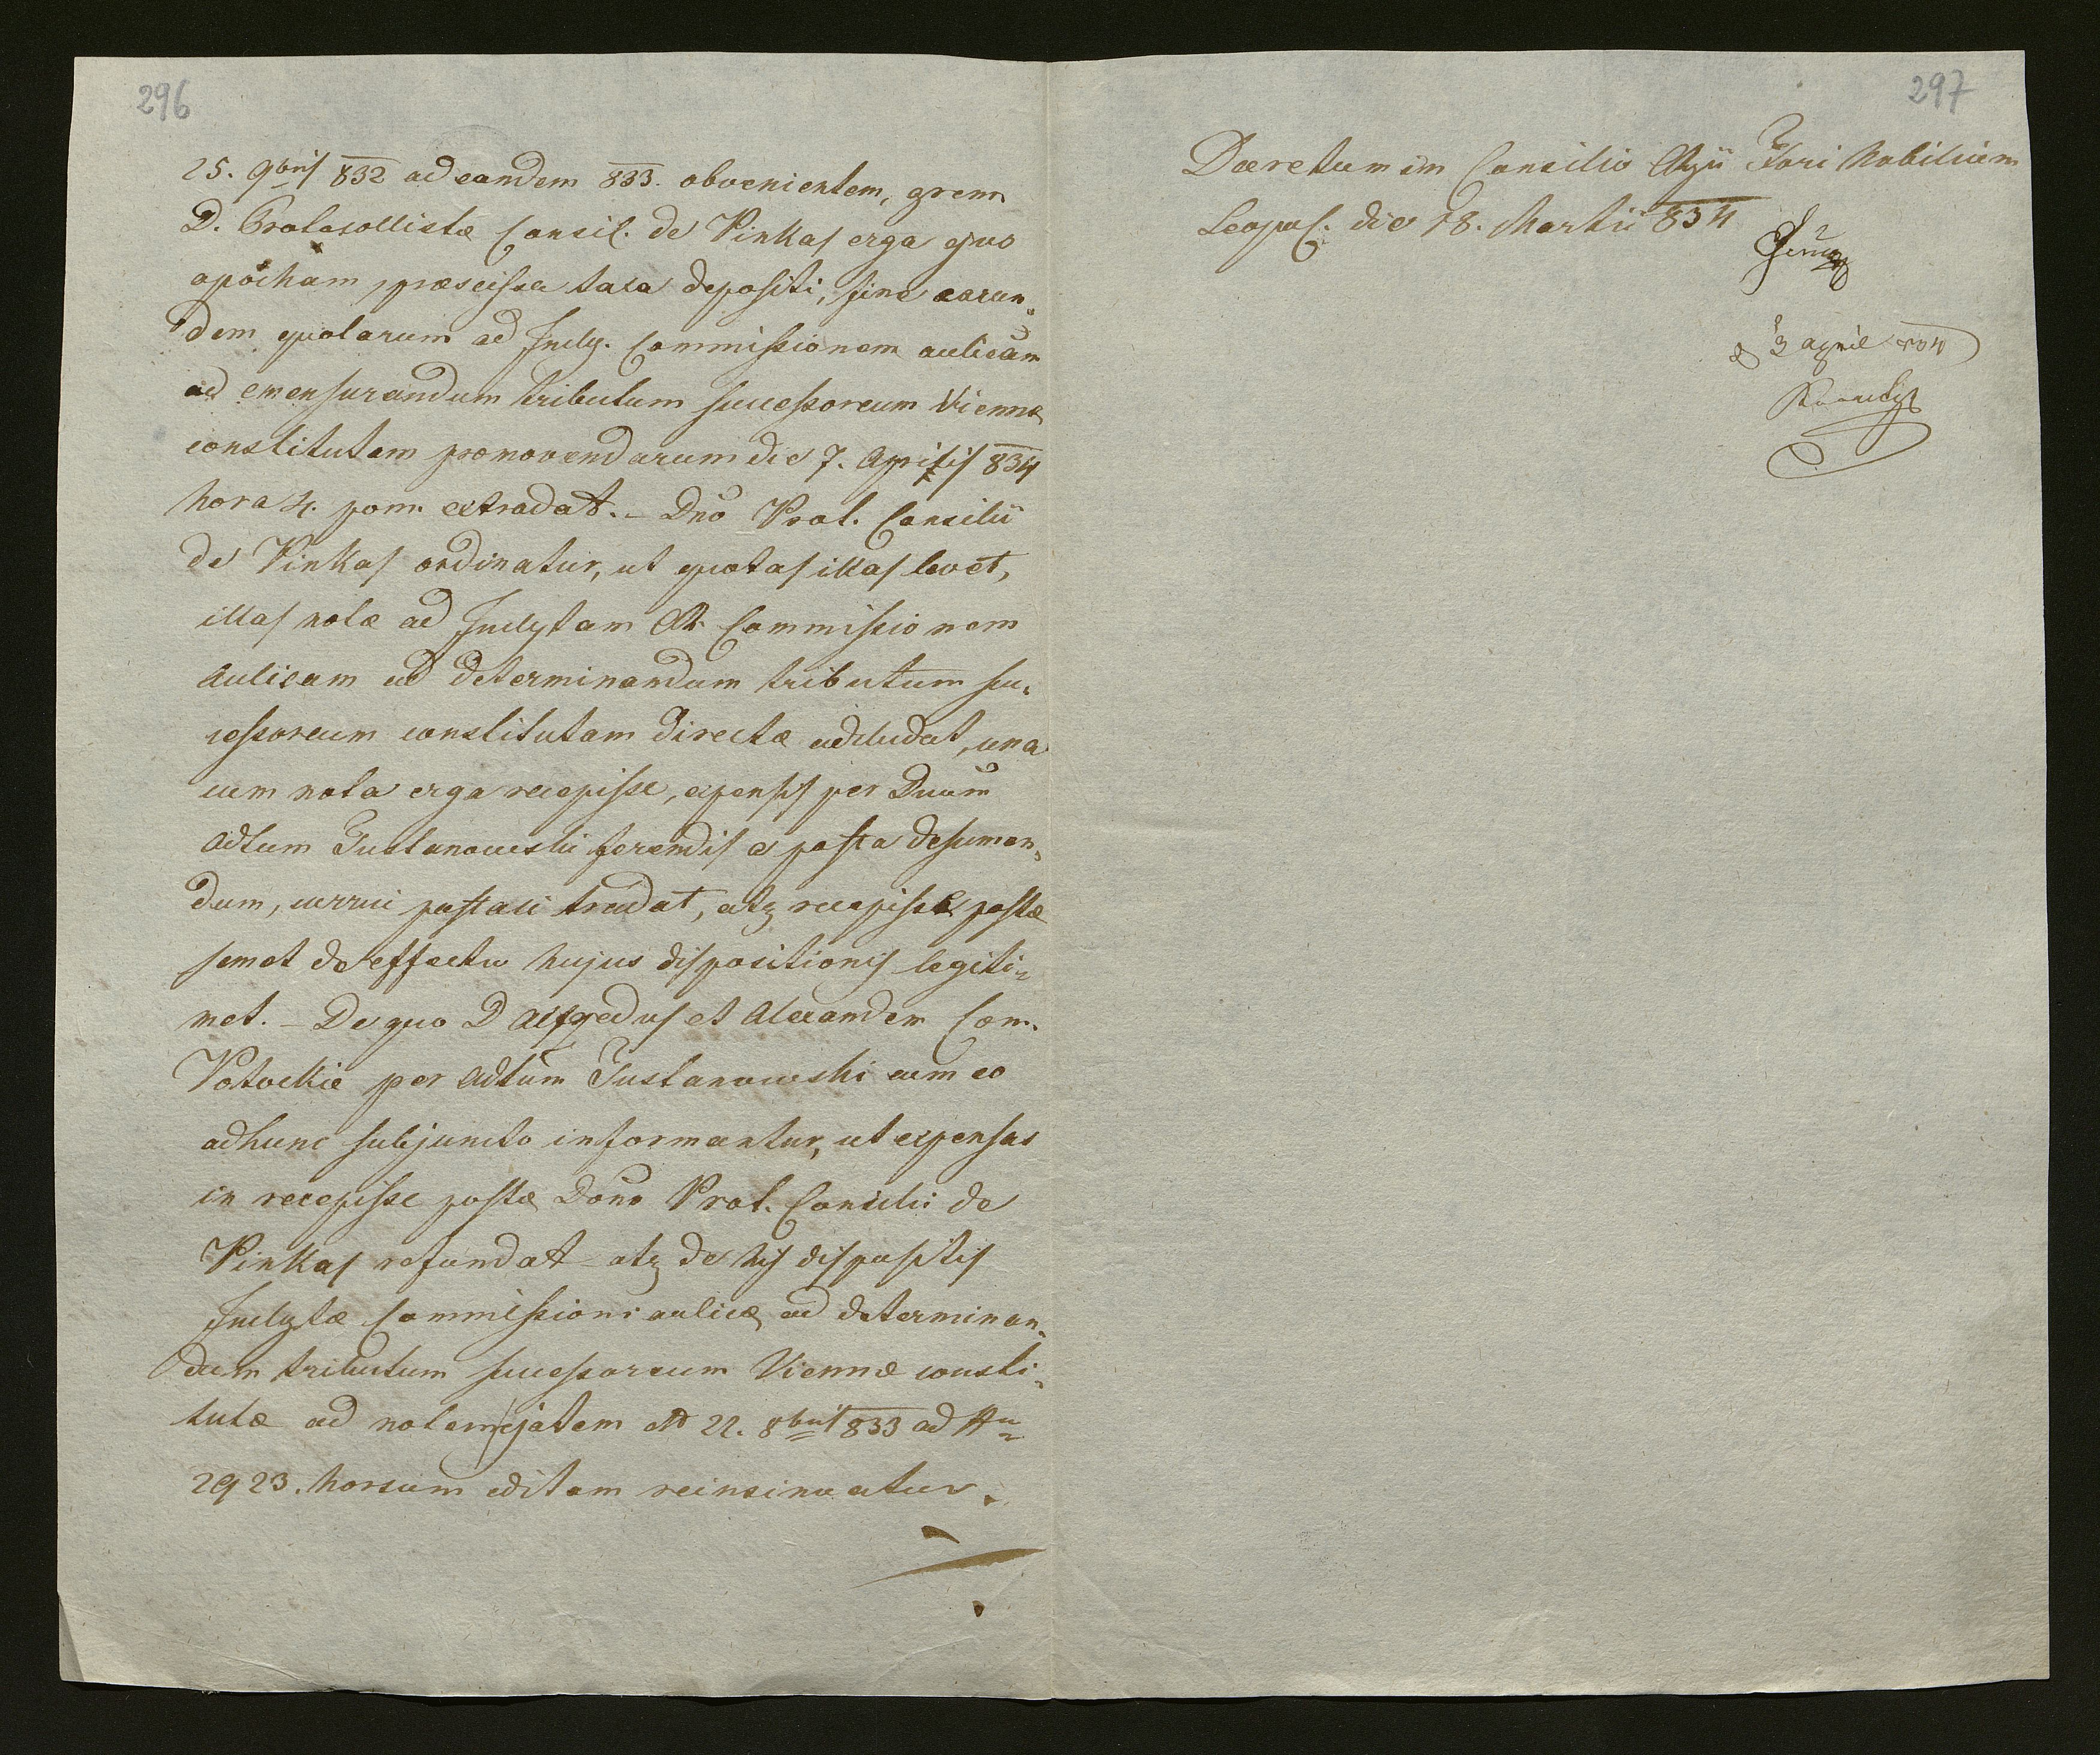 296
25. 9bris 832 ad eandem 833. obvenientem, grem
D. Protocollistæ Consil. de Pinkas erga ejus
apocham, præscissa taxa depositi, fine earun„
dem quotarum ad Incly. Commissionem aulicam
ad emensurandum tributum successoreum Viennæ
constitutam promovendarum die 7. Aprilis 834
hora 4. pom. extradat. – Dno Prot. Consilii
de Pinkas ordinatur, ut quotas illas levet,
illas notæ ad Inclytam Commissionem
Aulicam ad determinandum tributum suc„
cessoreum constitutam directæ adcludat, una
cum nota erga recepisse, expensis per Dnum
Adtum Tustanowski ferendis a posta desumen„
dum, currui postali tradat, atq recepisse postæ
semet de effectu hujus dispositionis legiti„
met. – De quo D Alfredus et Alexander Com.
Potockie per Adtum Tustanowski cum eo
adhunc subjuncto informantur, ut expensas
in recepisse postæ Dono Prot. Consilii de
Pinkas refundat – atq de his dispositis
Inclytæ Commissioni aulicæ ad determinan„
dum tributum successoreum Viennæ consti„
tutæ ad notam ejatem dto 22. 8bris 833 ad Nu
2923. horsum editam reinsinuatur.
297
Decretum in Consilio Fori Nobilium
Leopol. die 18. Martii 834
3 april 834